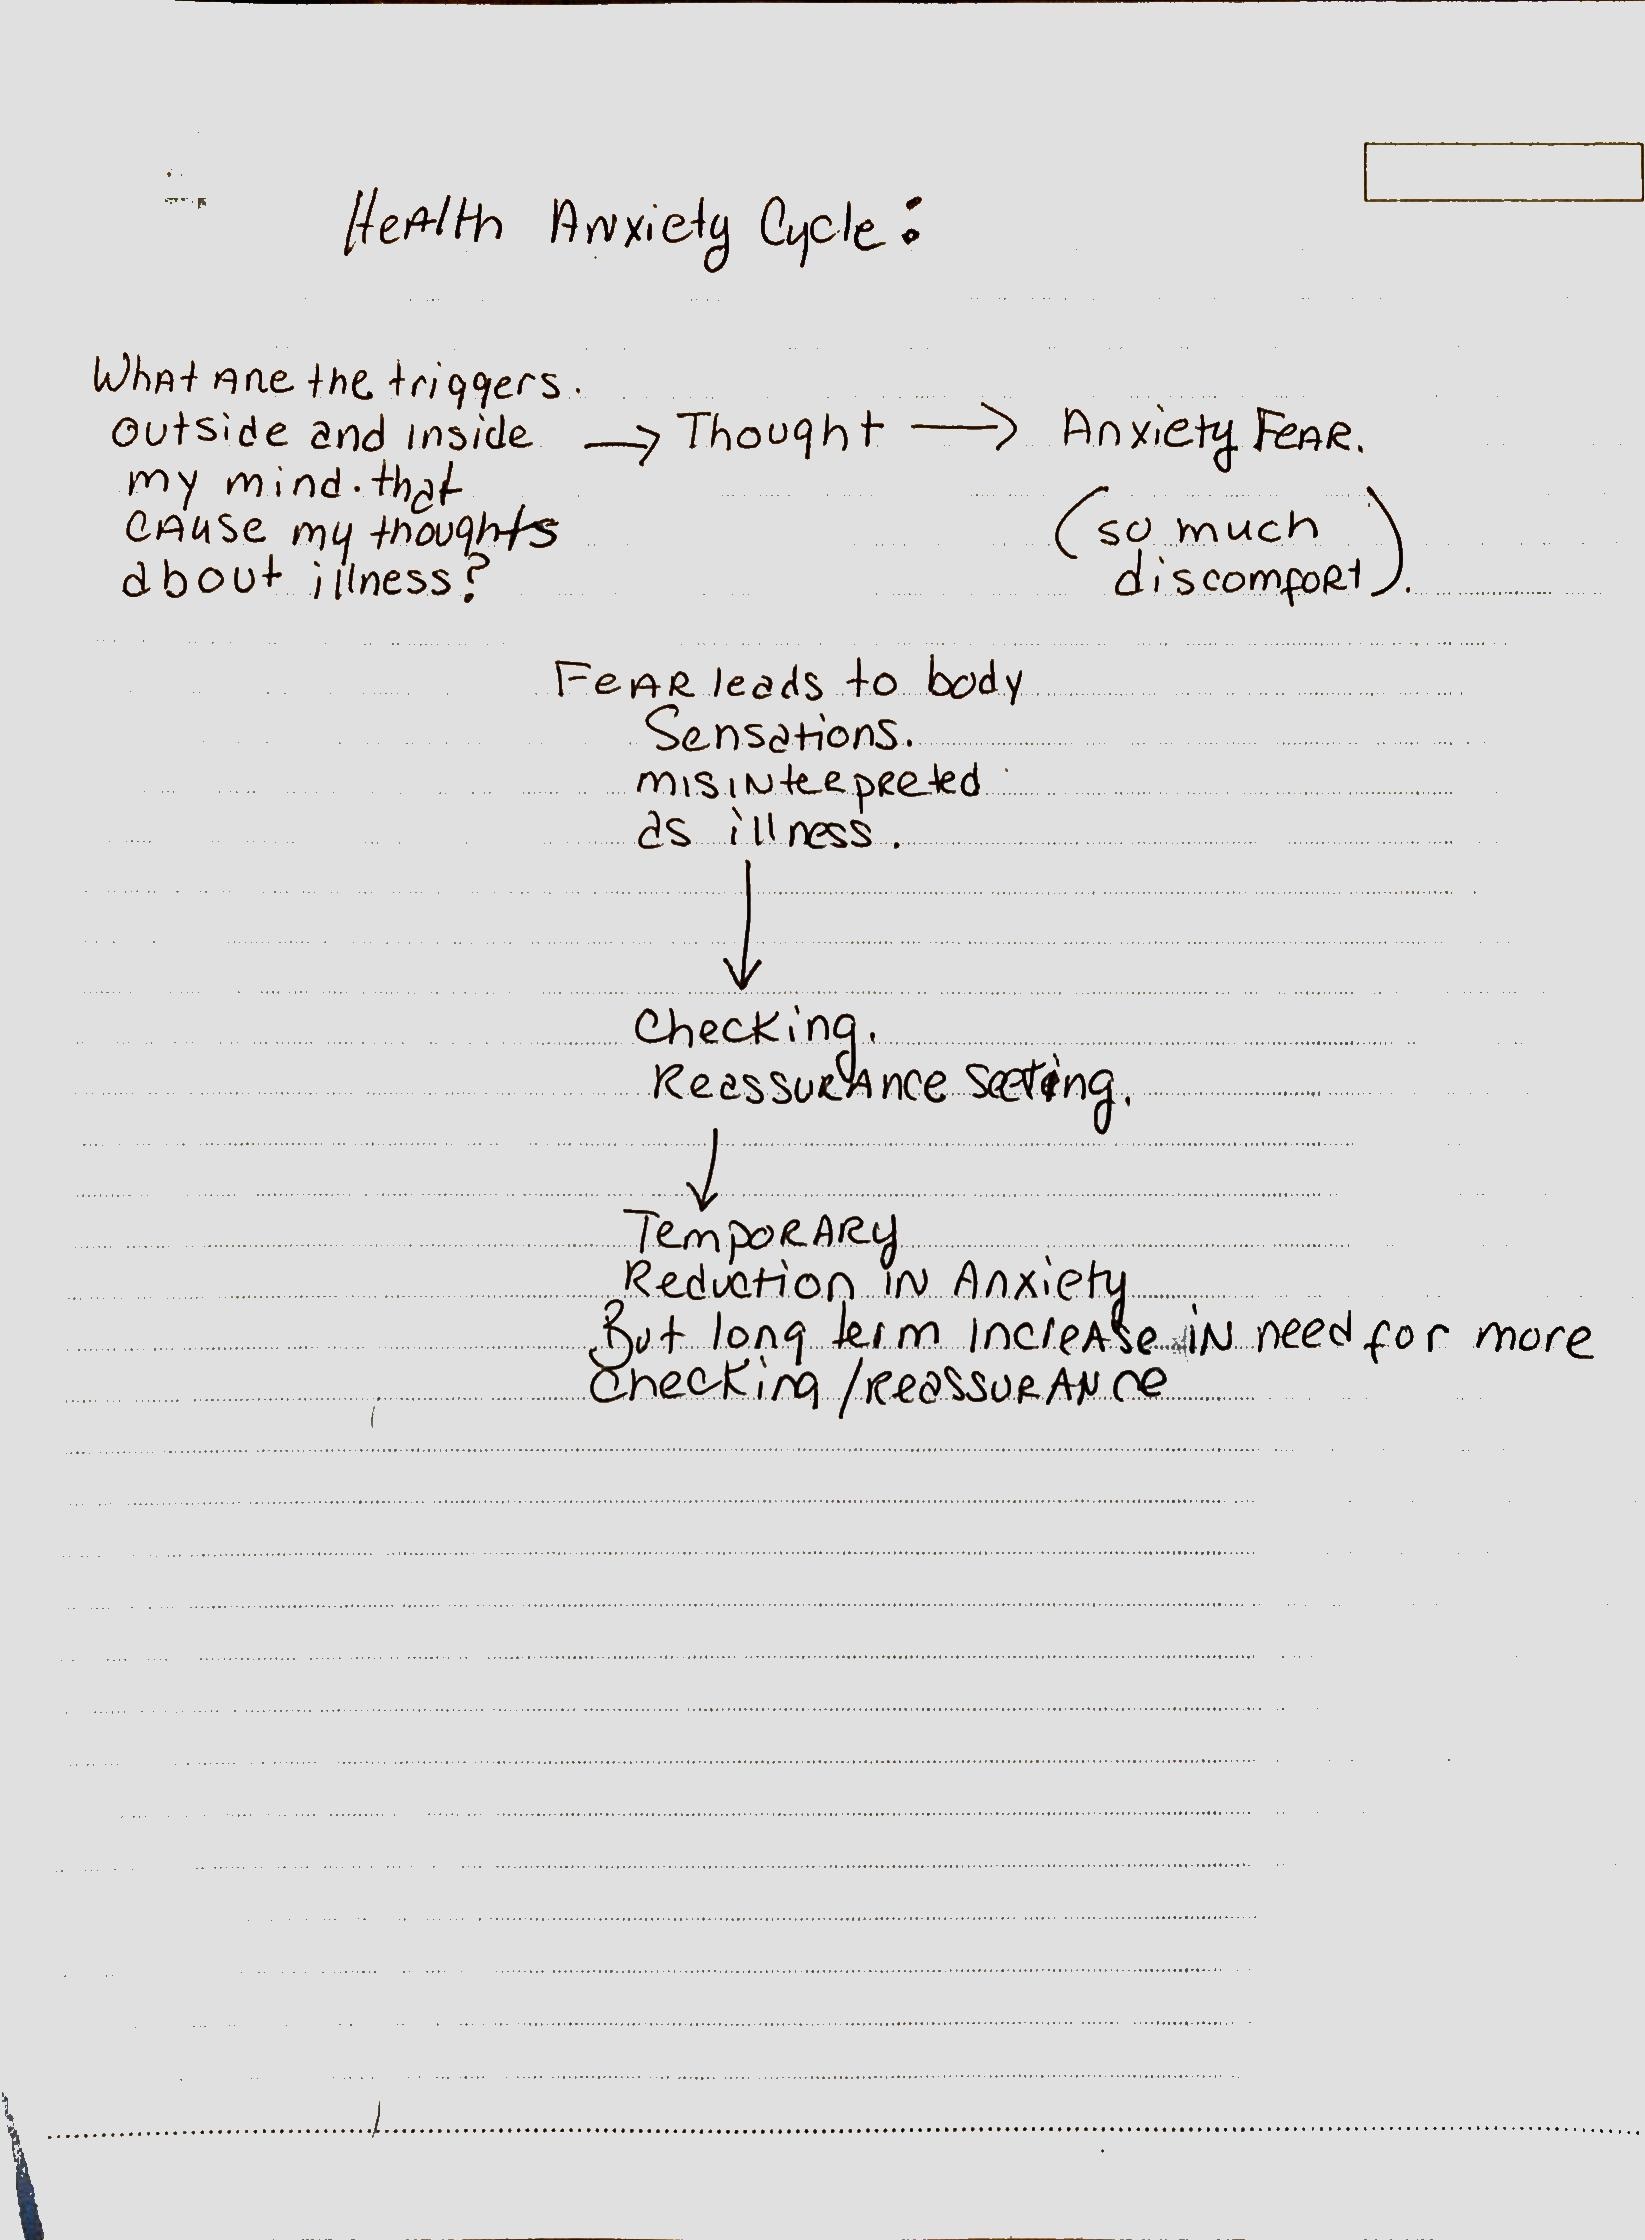 Health Anxiety Cycle:
What are the triggers.
outside and inside → Thought → Anxiety Fear.
my mind. that
cause my thoughts
about illness?
(so much
discomfort).
Fear leads to body
Sensations.
misinterpreted
as illness.
↓
Checking.
Reassurance seeking.
↓
Temporary
Reduction in Anxiety
But long term increase in need for more
checking / reassurance